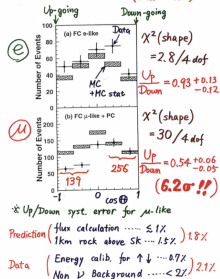 Up-going Down-going
(a) FC e-like
Data
MC
+MC stat
Number of Events
e
χ²(shape)
= 2.8/4 dof
Up/Down = 0.93 +0.13 -0.12
(b) FC μ-like + PC
Number of Events
μ
139
256
-1 -0.8 -0.4 0 0.4 0.8 1
cosΘ
χ²(shape)
= 30/4 dof
Up/Down = 0.54 +0.06 -0.05
(6.2σ !!)
* Up/Down syst. error for μ-like
Prediction ( flux calculation ····· ≲1%
1km rock above SK ···· 1.5% ) 1.8%
Data ( Energy calib. for ↑↓ ···· 0.7%
Non ν Background ······ <2% ) 2.1%